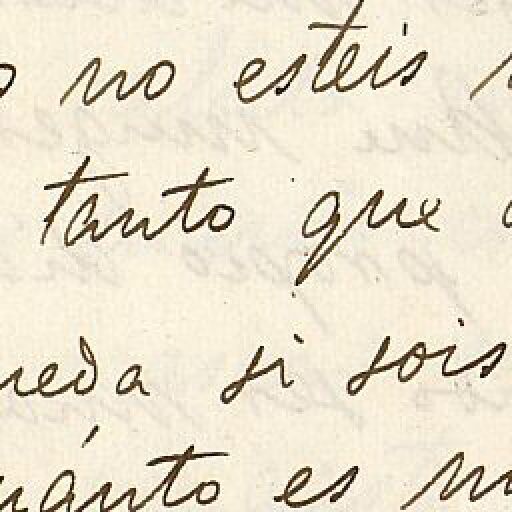 o no esteis
tanto que
ueda si sois
uánto es